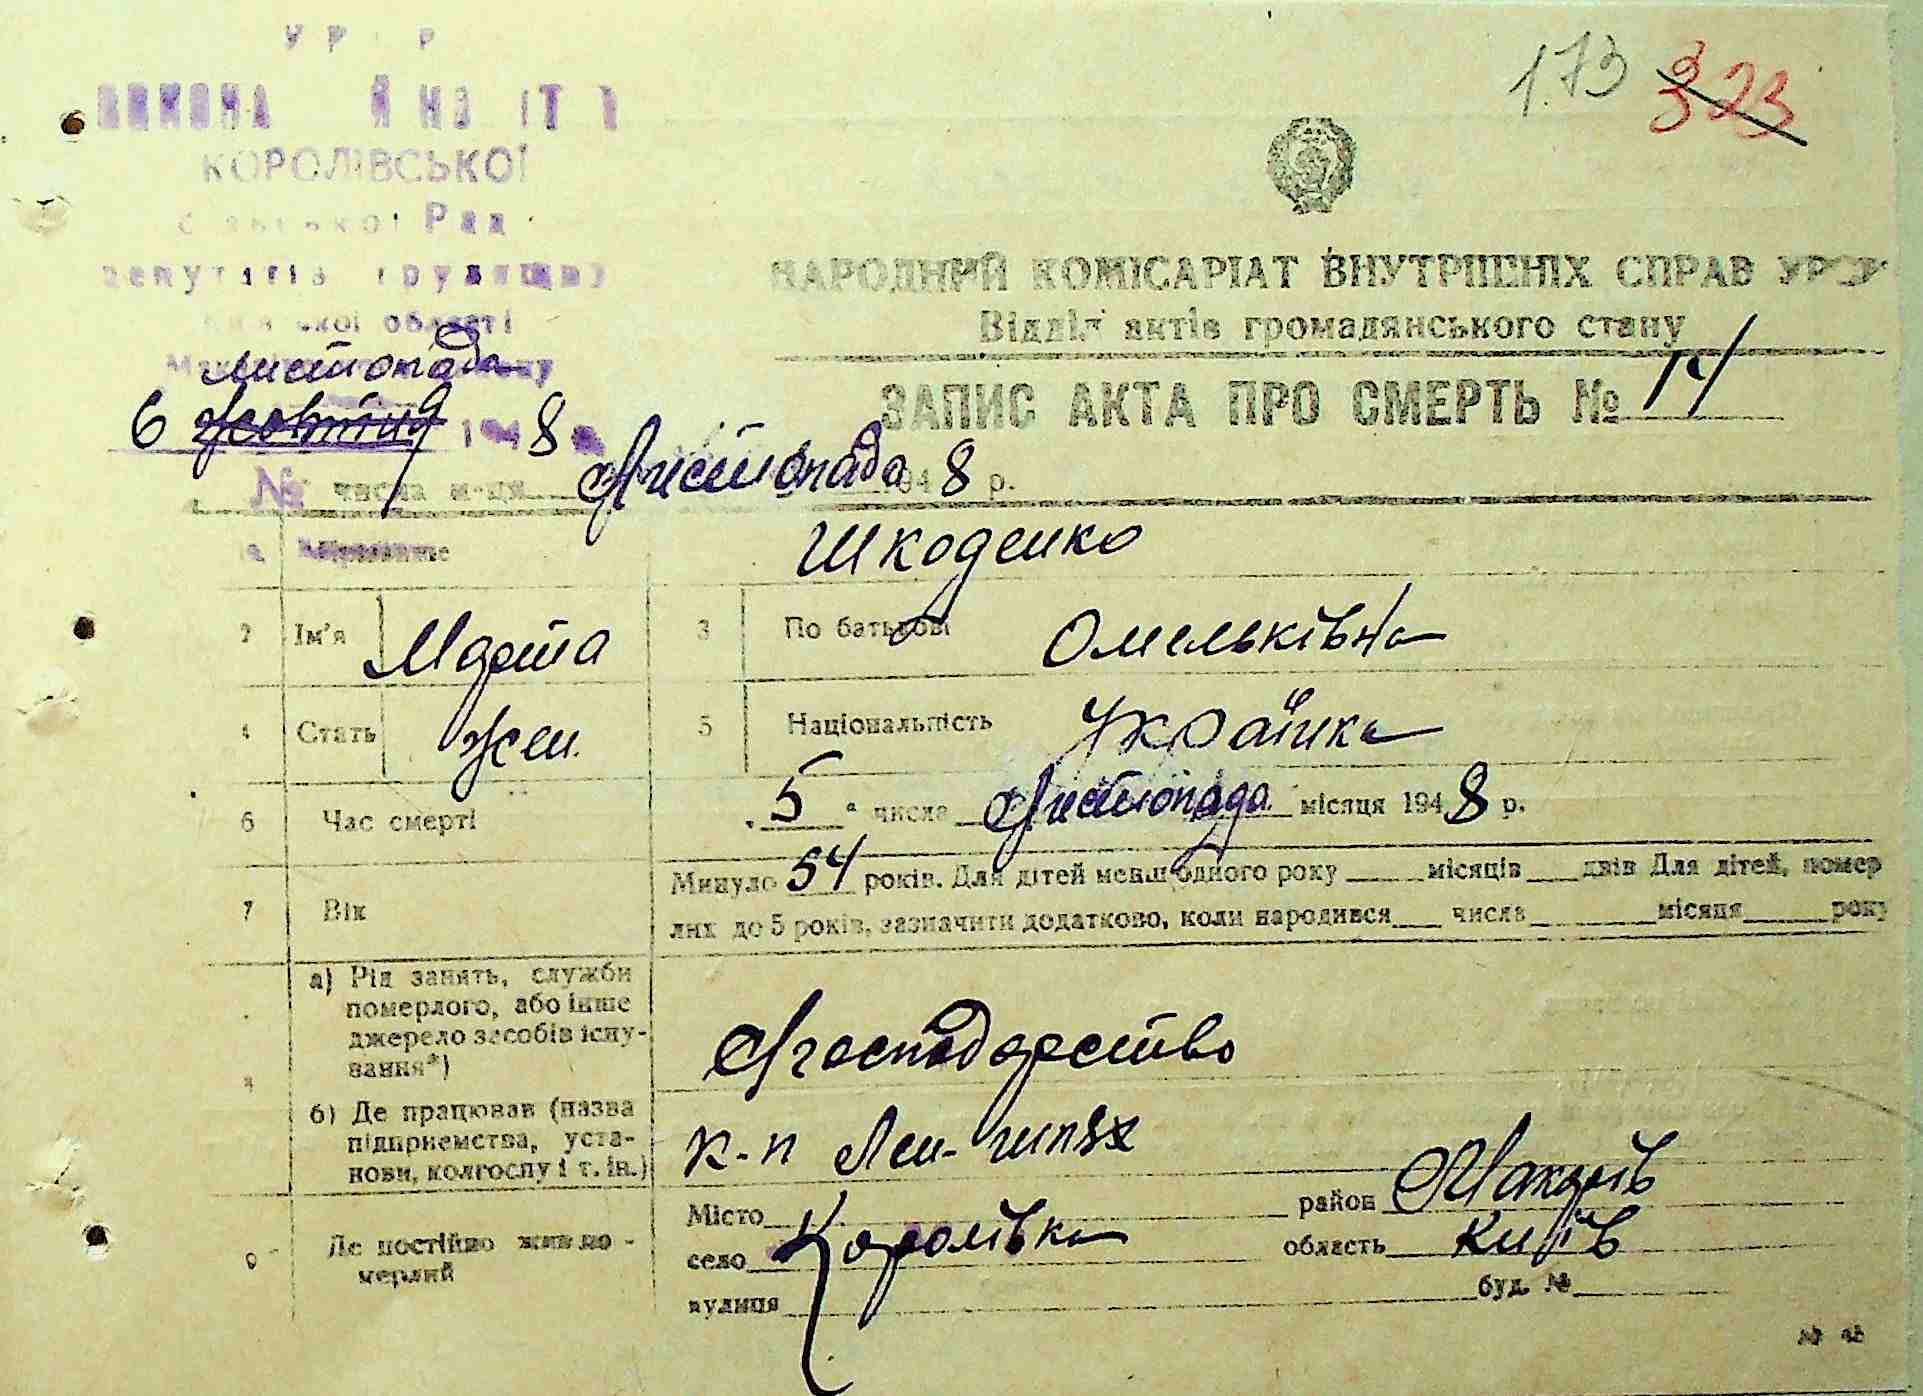 173 323
КОРОЛІВСЬКОЇ
Рад
депутатів трудящих
області
Листопада
6 жовтня 1948
НАРОДНИЙ КОМІСАРІАТ ВНУТРІШНІХ СПРАВ УРСР
Відділ актів громадянського стану
ЗАПИС АКТА ПРО СМЕРТЬ № 14
№ числа м-ця Листопада 1948 р.
Прізвище Шкоденко
2 Ім'я Марта 3 По батькові Омельківна
4 Стать жен. 5 Національність Українка
6 Час смерті „5“ числа Листопада місяця 1948 р.
7 Вік Минуло 54 років. Для дітей менш одного року місяців днів Для дітей, помер
лих до 5 років, зазначити додатково, коли народився числа місяця року
а) Рід занять, служби
померлого, або інше
джерело засобів існу-
вання*)
б) Де працював (назва
підприємства, уста-
нови, колгоспу і т. ін.)
к-п Лен-шлях
9 Де постійно жив по-
мерлий
Місто район Макарів
село Королівка область Київ
вулиця буд. №